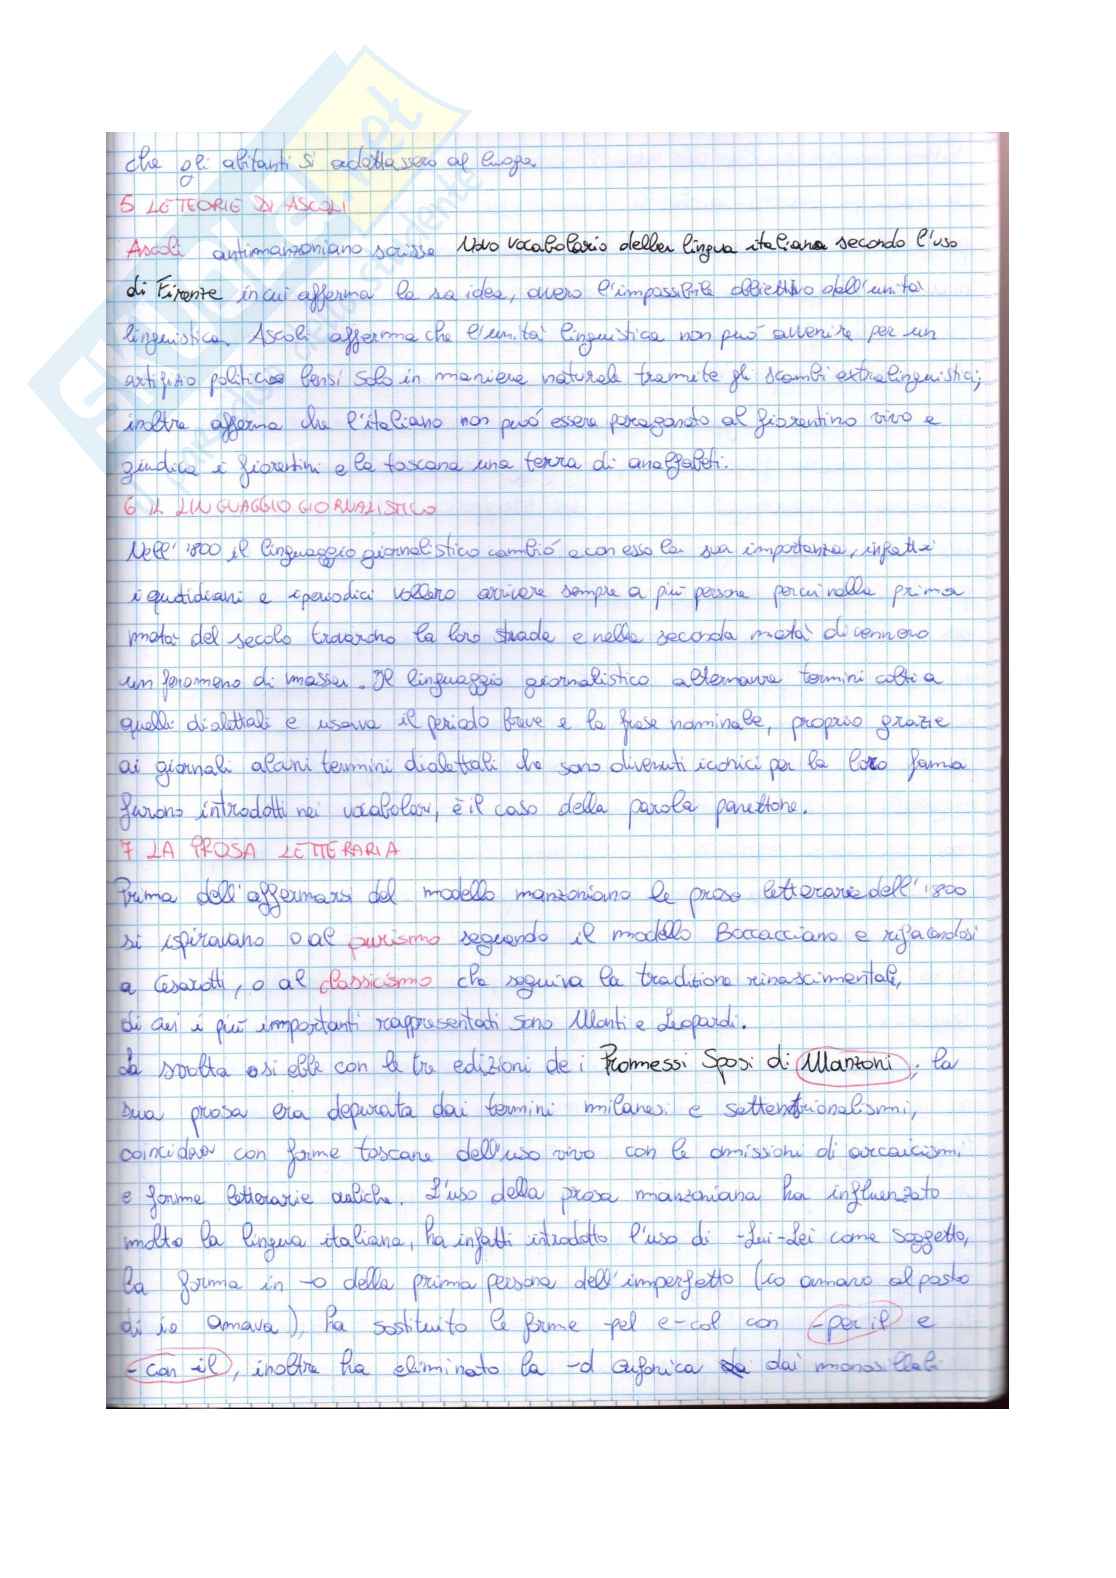 che gli abitanti si adattassero al luogo.
5 LE TEORIE DI ASCOLI
Ascoli antimanzoniano scrisse Novo vocabolario della lingua italiana secondo l'uso
di Firenze in cui afferma la sa idea, ovvero l'impossibile obbiettivo dell'unità
linguistica. Ascoli afferma che l'unità linguistica non può avvenire per un
artifizio politico bensì solo in maniera naturale tramite gli scambi extralinguistici;
inoltre afferma che l'italiano non può essere paragonato al fiorentino vivo e
giudica i fiorentini e la toscana una terra di analfabeti.
6 IL LINGUAGGIO GIORNALISTICO
Nell' '800 il linguaggio giornalistico cambiò e con esso la sua importanza, infatti
i quotidiani e i periodici vollero arrivare sempre a più persone per cui nella prima
metà del secolo trovarono la loro strada e nella seconda metà divennero
un fenomeno di massa. Il linguaggio giornalistico alternava termini colti a
quelli dialettali e usava il periodo breve e la frase nominale, proprio grazie
ai giornali alcuni termini dialettali che sono divenuti iconici per la loro fama
furono introdotti nei vocabolari, è il caso della parola panettone.
7 LA PROSA LETTERARIA
Prima dell'affermarsi del modello manzoniano le prose letterarie dell' '800
si ispiravano o al purismo seguendo il modello Boccacciano e rifacendosi
a Cesarotti, o al classicismo che seguiva la tradizione rinascimentale,
di cui i più importanti rappresentati sono Monti e Leopardi.
La svolta si ebbe con le tre edizioni de i Promessi Sposi di Manzoni, la
sua prosa era depurata dai termini milanesi e settentrionalismi,
coincideva con forme toscane dell'uso vivo con le omissioni di arcaicismi
e forme letterarie auliche. L'uso della prosa manzoniana ha influenzato
molto la lingua italiana, ha infatti introdotto l'uso di -Lui-Lei come soggetto,
la forma in -o della prima persona dell'imperfetto (io amavo al posto
di io amava), ha sostituito le forme -pel e -col con -per il e
-con il, inoltre ha eliminato la -d eufonica dai monosillabi